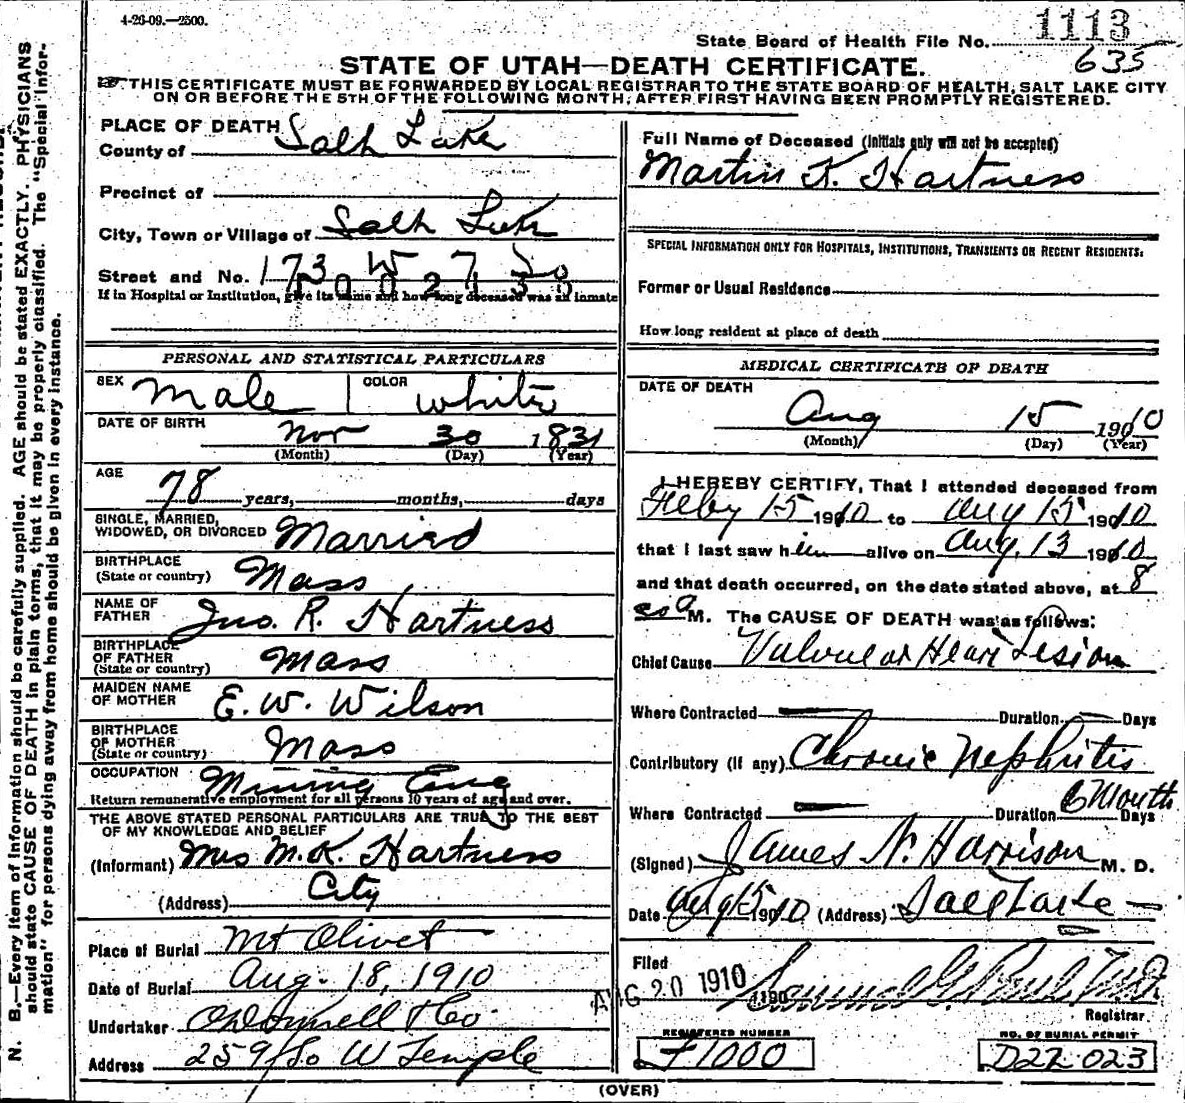 4-26-09.—2500.
State Board of Health File No. 1113
635
STATE OF UTAH—DEATH CERTIFICATE.
THIS CERTIFICATE MUST BE FORWARDED BY LOCAL REGISTRAR TO THE STATE BOARD OF HEALTH, SALT LAKE CITY
ON OR BEFORE THE 5TH OF THE FOLLOWING MONTH, AFTER FIRST HAVING BEEN PROMPTLY REGISTERED.
N. B.—Every item of information should be carefully supplied. AGE should be stated EXACTLY. PHYSICIANS
should state CAUSE OF DEATH in plain terms, that it may be properly classified. The "Special Infor-
mation" for persons dying away from home should be given in every instance.
PLACE OF DEATH
County of Salt Lake
Precinct of
City, Town or Village of Salt Lake
Street and No. 173 W 7 So
If in Hospital or Institution, give its name and how long deceased was an inmate
PERSONAL AND STATISTICAL PARTICULARS
SEX Male COLOR White
DATE OF BIRTH Nov 30 1831
(Month) (Day) (Year)
AGE 78 years, months, days
SINGLE, MARRIED,
WIDOWED, OR DIVORCED Married
BIRTHPLACE
(State or country) Mass
NAME OF
FATHER Jno. R. Hartness
BIRTHPLACE
OF FATHER
(State or country) Mass
MAIDEN NAME
OF MOTHER E. W. Wilson
BIRTHPLACE
OF MOTHER
(State or country) Mass
OCCUPATION Mining Eng
Return remunerative employment for all persons 10 years of age and over.
THE ABOVE STATED PERSONAL PARTICULARS ARE TRUE TO THE BEST
OF MY KNOWLEDGE AND BELIEF
(Informant) Mrs M. K. Hartness
(Address) City
Place of Burial Mt Olivet
Date of Burial Aug. 18, 1910
Undertaker & Co.
Address 259 So W Temple
Full Name of Deceased (Initials only will not be accepted)
Martin K. Hartness
SPECIAL INFORMATION ONLY FOR HOSPITALS, INSTITUTIONS, TRANSIENTS OR RECENT RESIDENTS:
Former or Usual Residence
How long resident at place of death
MEDICAL CERTIFICATE OF DEATH
DATE OF DEATH
Aug 15 1910
(Month) (Day) (Year)
I HEREBY CERTIFY, That I attended deceased from
Feby 15 1910 to Aug 15 1910
that I last saw him alive on Aug. 13 1910
and that death occurred, on the date stated above, at 8
a M. The CAUSE OF DEATH was as follows:
Chief Cause Valvular Heart Lesion
Where Contracted Duration Days
Contributory (if any) Chronic Nephritis
Where Contracted Duration 6 Month Days
(Signed) James N. Harrison M. D.
Date Aug 15 1910 (Address) Salt Lake
Filed AUG 20 1910 190 Samuel G. Paul M.D.
Registrar.
REGISTERED NUMBER
F1000
NO. OF BURIAL PERMIT
D22023
(OVER)